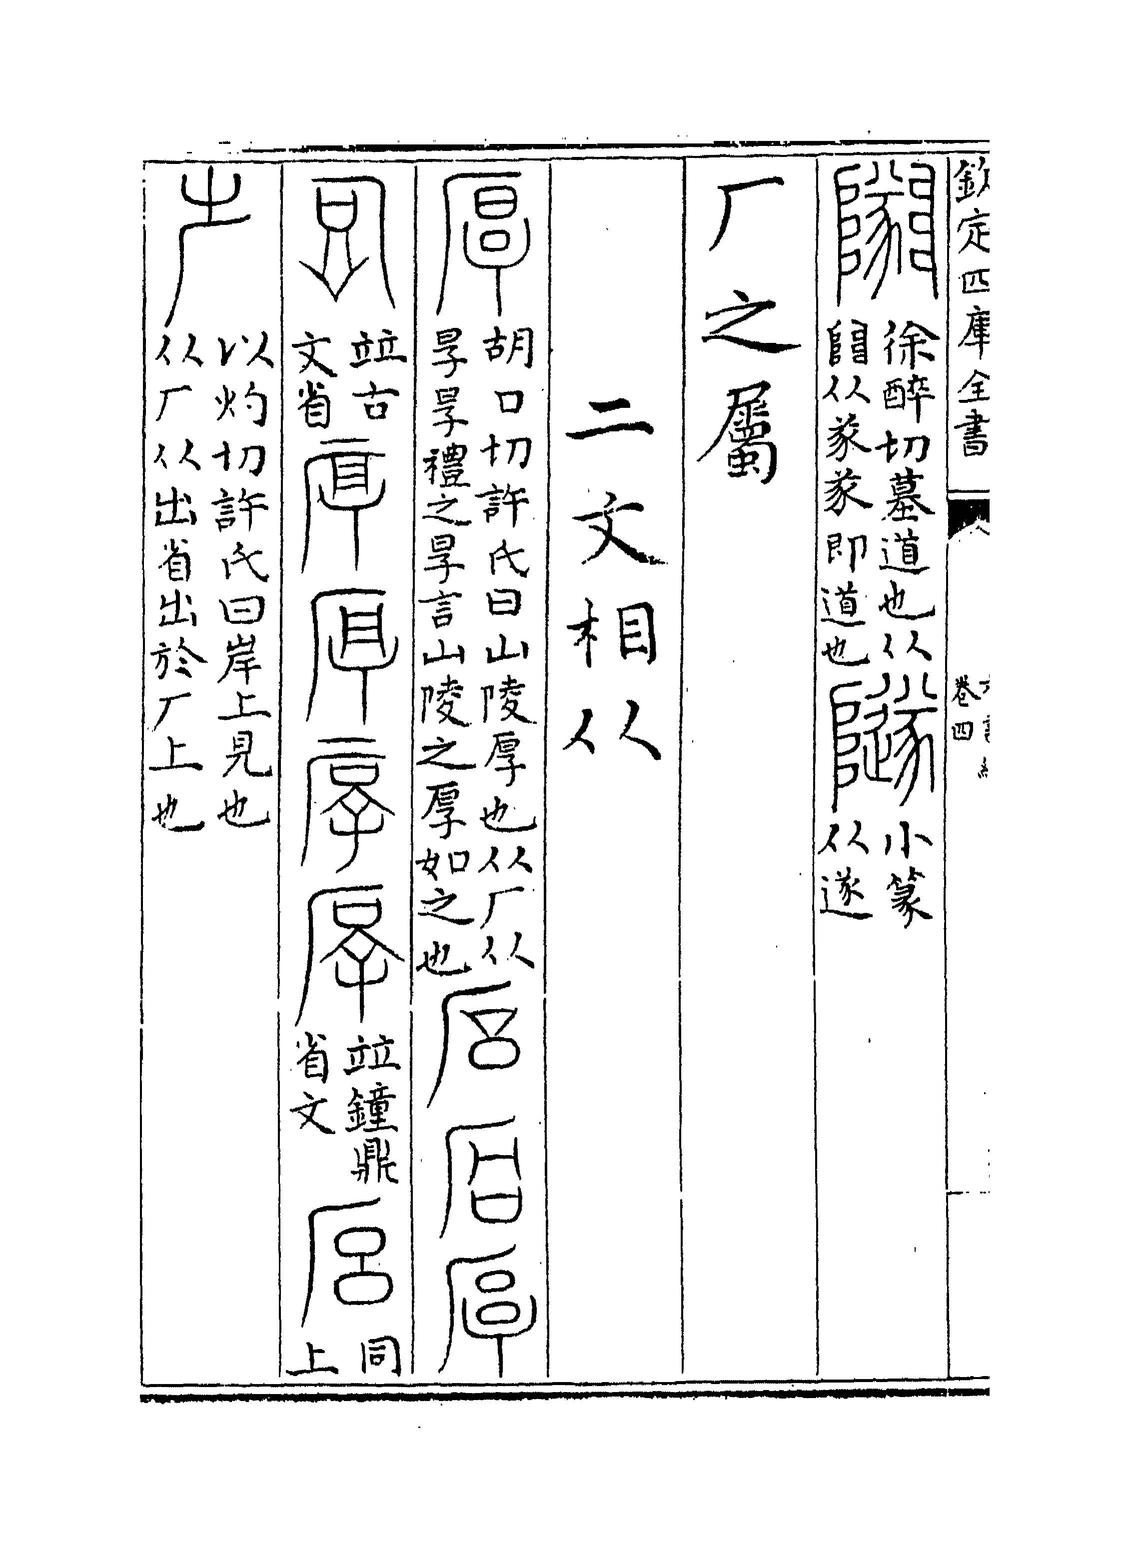 欽定四庫全書
卷四
徐醉切墓道也从
𨸏从㒸㒸即道也
小篆
从遂
厂之屬
二文相从
厚
胡口切許氏曰山陵厚也从厂从
㫗㫗禮之㫗言山陵之厚如之也
竝古
文省
竝鐘鼎
省文
同
上
以灼切許氏曰岸上見也
从厂从出省出於厂上也